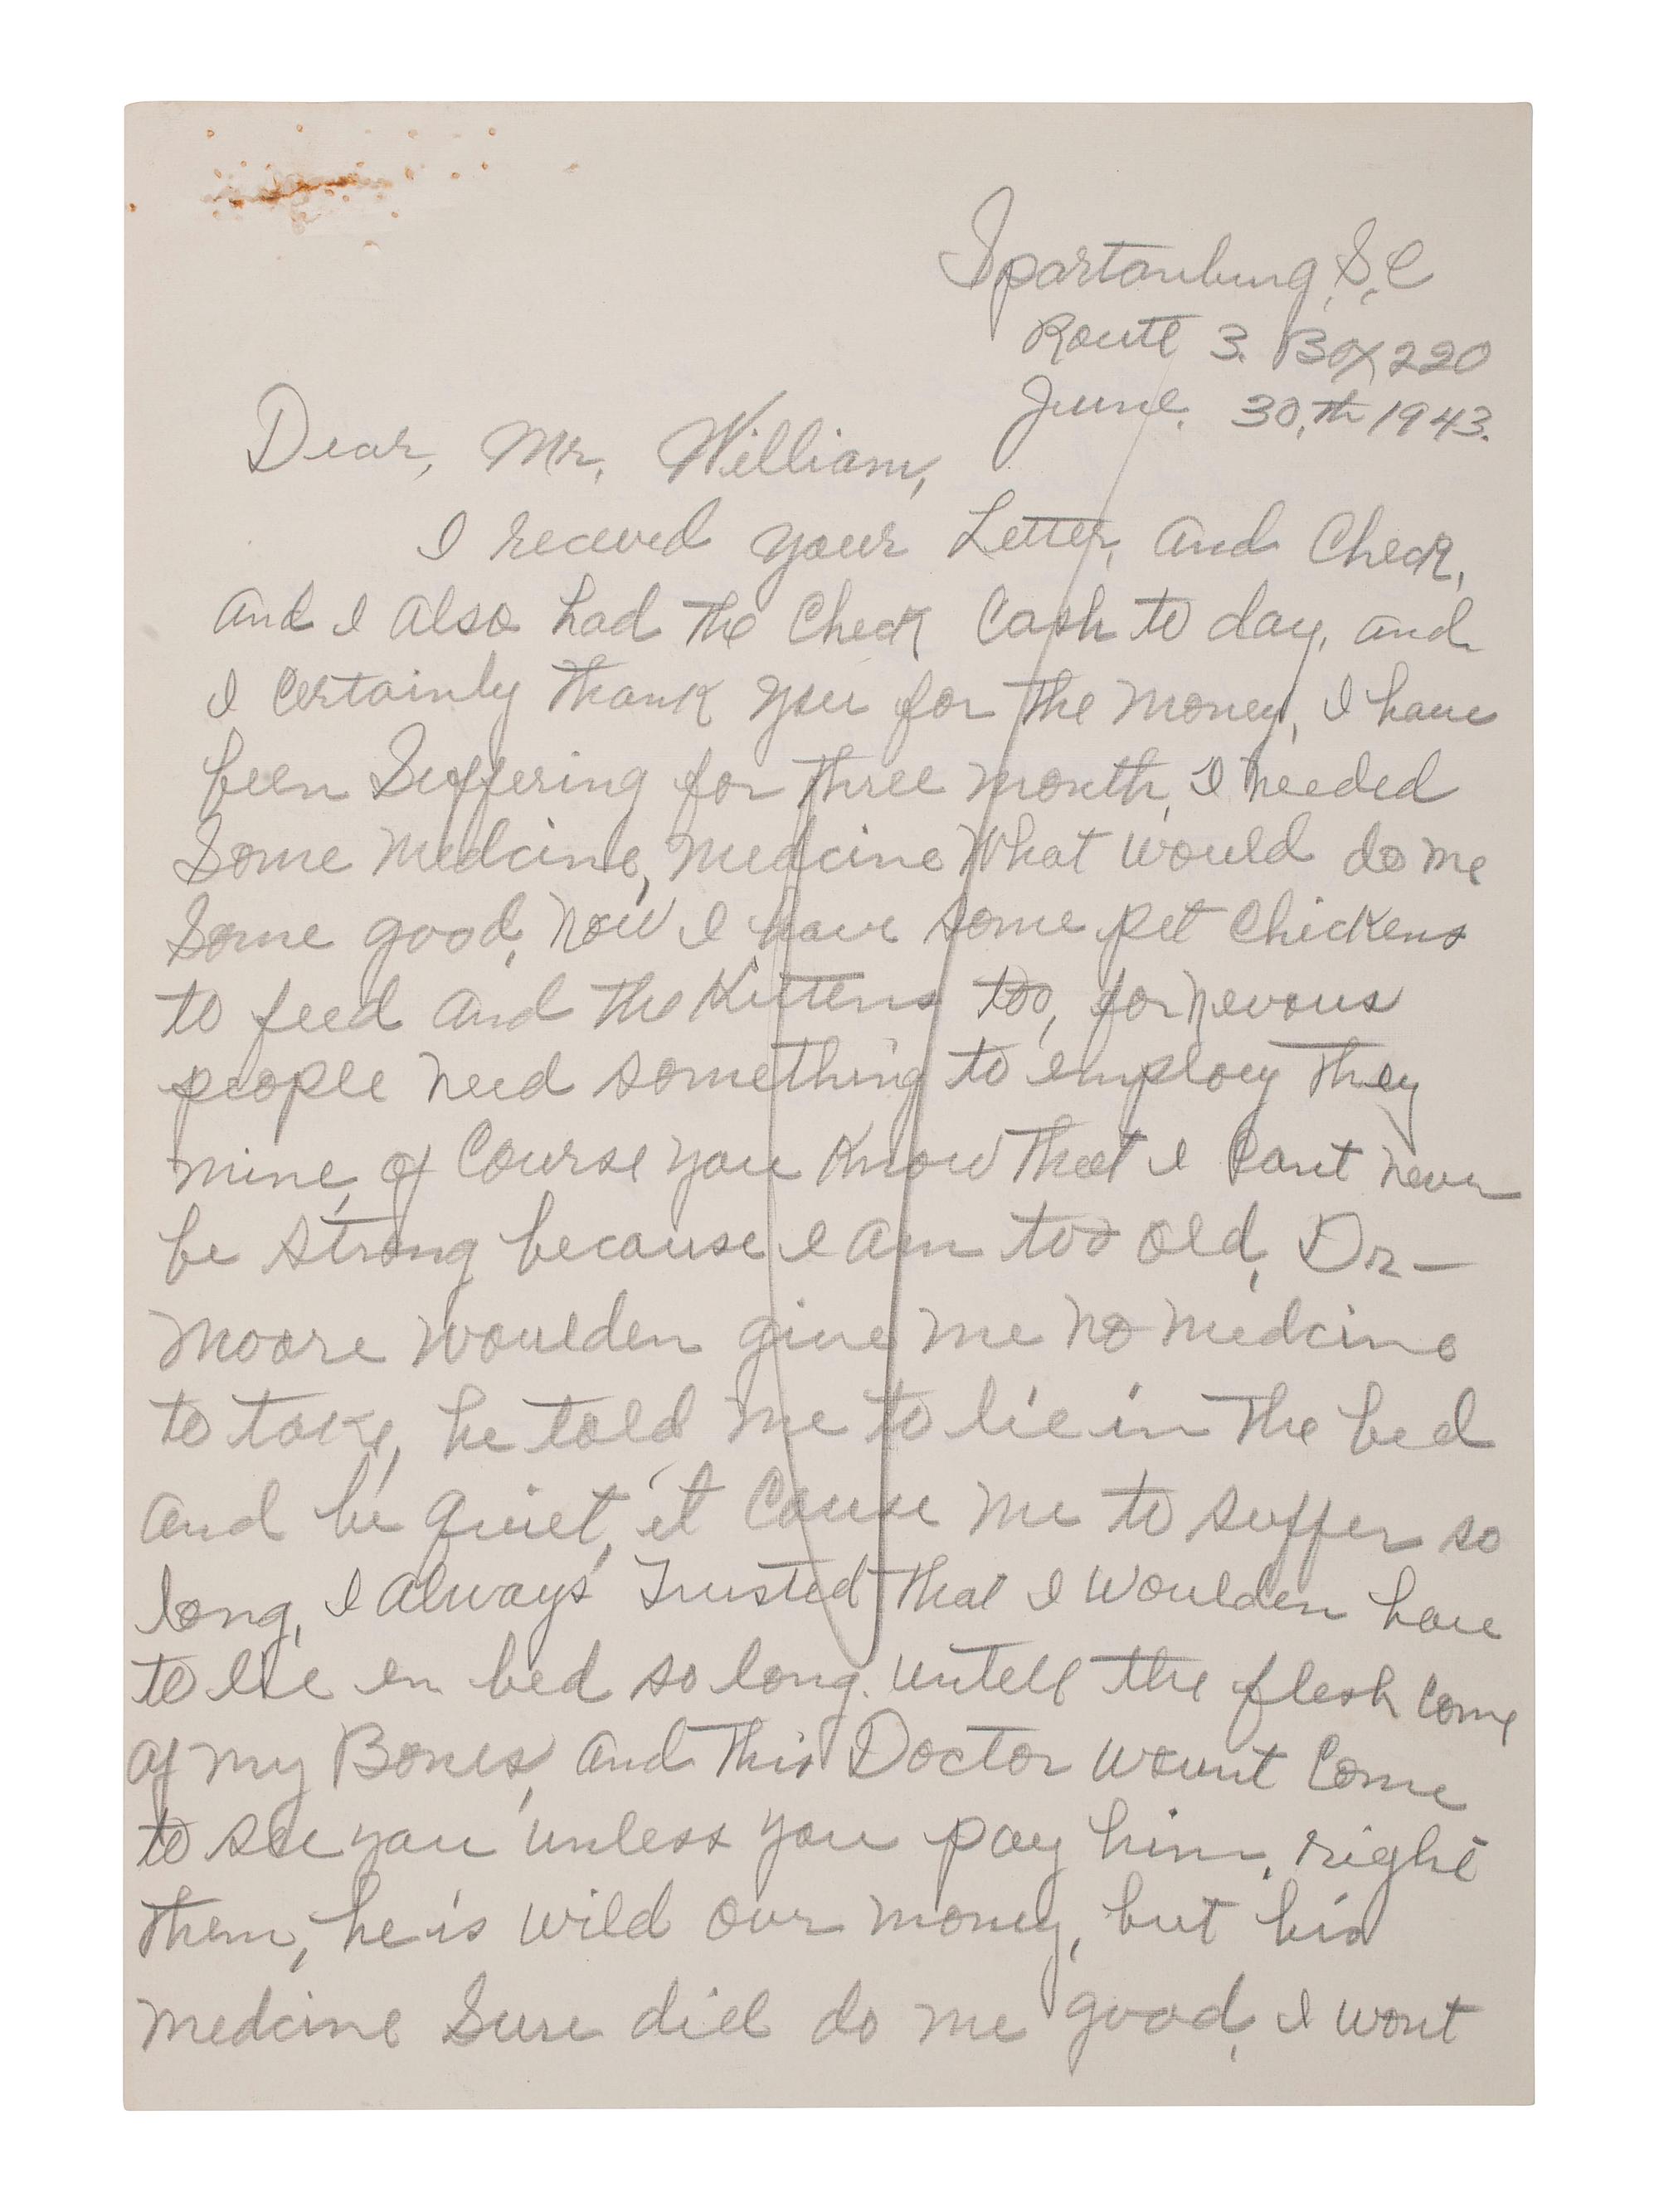 Spartanburg, S.C
Route 3. Box 220
June. 30,th 1943.
Dear, Mr. William,
I receved your Letter, and Check,
and I also had the Check Cash to day, and
I certainly thank you for the money, I have
been Suffering for three month, I needed
Some medcine, medcine what would do me
Some good, now I have some pet chickens
to feed and the Kittens too, for nevous
people need something to employ they
mine, of Course you know that I cant never
be strong because I am too old, Dr-
Moore woulden give me no medcine
to take, he told me to lie in the bed
and be quiet, it cause me to suffer so
long, I always Trusted that I woulden have
to lie in bed so long. untell the flesh come
of my Bones, and this Doctor wount Come
to see you unless you pay him, right
then, he is wild our money, but his
medcine Sure did do me good, I wont